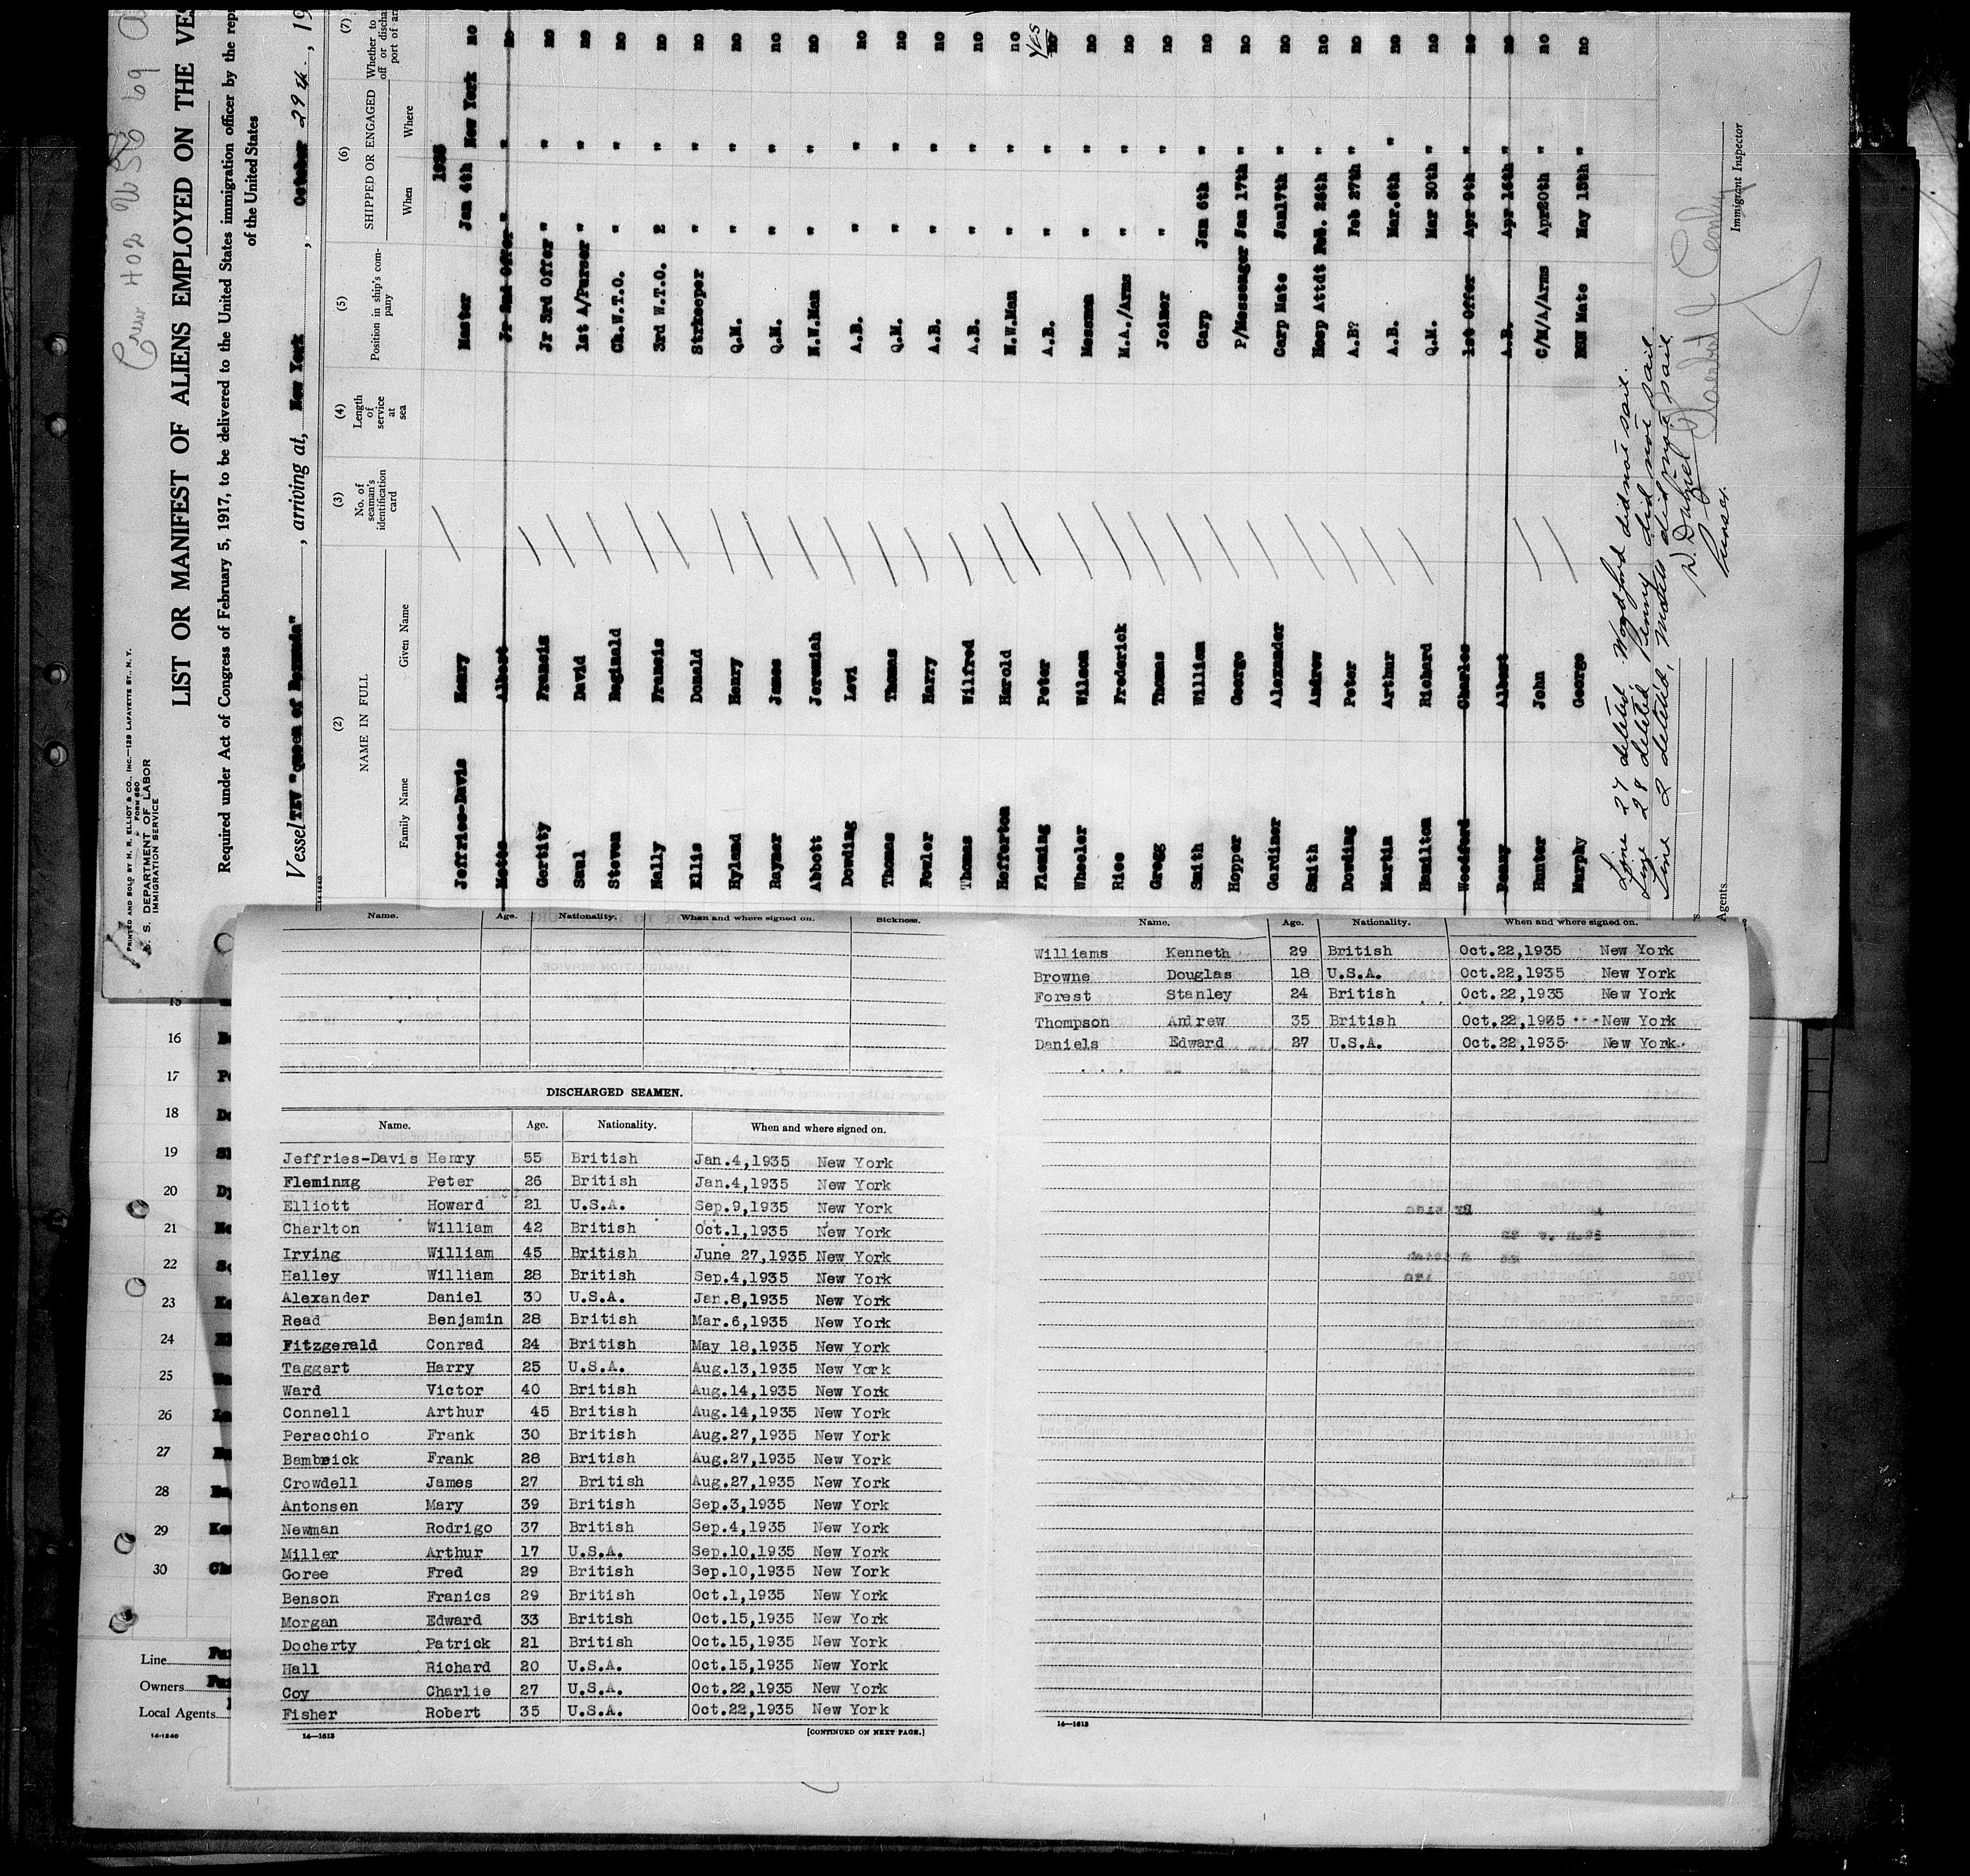 Crew 402 USC 69 a
PRINTED AND SOLD BY H. R. ELLIOT & CO., INC.—129 LAFAYETTE ST., N. Y.
FORM 680
U. S. DEPARTMENT OF LABOR
IMMIGRATION SERVICE
LIST OR MANIFEST OF ALIENS EMPLOYED ON THE VES
Required under Act of Congress of February 5, 1917, to be delivered to the United States immigration officer by the repr
of the United States
Vessel TEV "Queen of Bermuda", arriving at, New York, October 29th, 19
(2) (3) (4) (5) (6) (7)
NAME IN FULL No. of seaman's identification card Length of service at sea Position in ship's company SHIPPED OR ENGAGED Whether to
off or discha
port of ar
Family Name Given Name When Where
1935
Jeffries-Davis Henry Master Jan 4th New York no
Motes Albert Jr 2nd Offer " " no
Gertity Francis Jr 3rd Offer " " no
Saul David 1st A/Purser " " no
Steven Reginald Ch.W.T.O. " " no
Nally Francis 3rd W.T.O. 2 " no
Ellis Donald Strkeeper " " no
Hyland Henry Q.M. " " no
Rayner James Q.M. " " no
Abbott Jeremiah N.W.Man " " no
Dowding Levi A.B. " " no
Thomas Thomas Q.M. " " no
Fowler Harry A.B. " " no
Thomas Wilfred A.B. " " no
Hefferton Harold N.W.Man " " no
Fleming Peter A.B. " " no yes
Wheeler Wilson Mesman " " no
Rice Frederick M.A./Arms " " no
Gregg Thomas Joiner " " no
Smith William Carp Jan 6th " no
Hopper George P/Messenger Jan 17th " no
Gardiner Alexander Carp Mate Jan17th " no
Smith Andrew Hosp Attdt Feb. 26th " no
Dowding Peter A.B? Feb 27th " no
Martin Arthur A.B. Mar.6th " no
Hamilton Richard Q.M. Mar 30th " no
Woodford Charles 1st Offer Apr 9th " no
Penny Albert A.B. Apr 16th " no
Hunter John C/M/A/Arms Apr20th " no
Murphy George BSN Mate May 15th " no
Line 27 deleted Woodford did not sail.
Line 28 deleted, Penny did not sail
Line 2 deleted, Motes did not sail.
Purser.
Immigrant Inspector
Agents
15
16
17
18
19
20
21
22
23
24
25
26
27
28
29
30
Line
Owners
Local Agents
14-1240
Name. Age. Nationality. When and where signed on. Sickness.
DISCHARGED SEAMEN.
Name. Age. Nationality. When and where signed on.
Jeffries-Davis Henry 55 British Jan.4,1935 New York
Fleminng Peter 26 British Jan.4,1935 New York
Elliott Howard 21 U.S.A. Sep.9,1935 New York
Charlton William 42 British Oct.1,1935 New York
Irving William 45 British June 27,1935 New York
Halley William 28 British Sep.4,1935 New York
Alexander Daniel 30 U.S.A. Jan.8,1935 New York
Read Benjamin 28 British Mar.6,1935 New York
Fitzgerald Conrad 24 British May 18,1935 New York
Taggart Harry 25 U.S.A. Aug.13,1935 New York
Ward Victor 40 British Aug.14,1935 New York
Connell Arthur 45 British Aug.14,1935 New York
Peracchio Frank 30 British Aug.27,1935 New York
Bambrick Frank 28 British Aug.27,1935 New York
Crowdell James 27 British Aug.27,1935 New York
Antonsen Mary 39 British Sep.3,1935 New York
Newman Rodrigo 37 British Sep.4,1935 New York
Miller Arthur 17 U.S.A. Sep.10,1935 New York
Goree Fred 29 British Sep.10,1935 New York
Benson Franics 29 British Oct.1,1935 New York
Morgan Edward 33 British Oct.15,1935 New York
Docherty Patrick 21 British Oct.15,1935 New York
Hall Richard 20 U.S.A. Oct.15,1935 New York
Coy Charlie 27 U.S.A. Oct.22,1935 New York
Fisher Robert 35 U.S.A. Oct.22,1935 New York
14—1613 [CONTINUED ON NEXT PAGE.]
Name. Age. Nationality. When and where signed on.
Williams Kenneth 29 British Oct.22,1935 New York
Browne Douglas 18 U.S.A. Oct.22,1935 New York
Forest Stanley 24 British Oct.22,1935 New York
Thompson Andrew 35 British Oct.22,1935 New York
Daniels Edward 27 U.S.A. Oct.22,1935 New York
14—1613